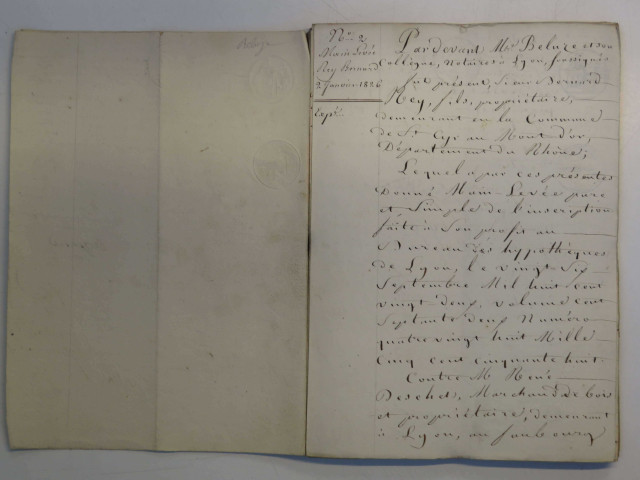 N.º 2
Main Levée
Rey Bernard
2 Janvier 1826
Expé
Pardevant Me. Beluze et son
Collègue, Notaires à Lyon, soussignés
fut présent, Sieur Bernard
Rey, fils, propriétaire,
demeurant en la Commune
de St. Cyr au Mont d'or,
Département du Rhône;
Lequel a par ces présentes
Donné Main-Levée pure
et Simple de l'inscription
faite à Son profit au
Bureau des hypothèques
de Lyon, le vingt Six
Septembre Mil huit cent
vingt deux, volume cent
Septante deux Numéro
quatre vingt huit Mille
Cinq cent cinquante huit.
Contre M. René
Deschet, Marchand de bois
et propriétaire, demeurant
à Lyon, au faubourg